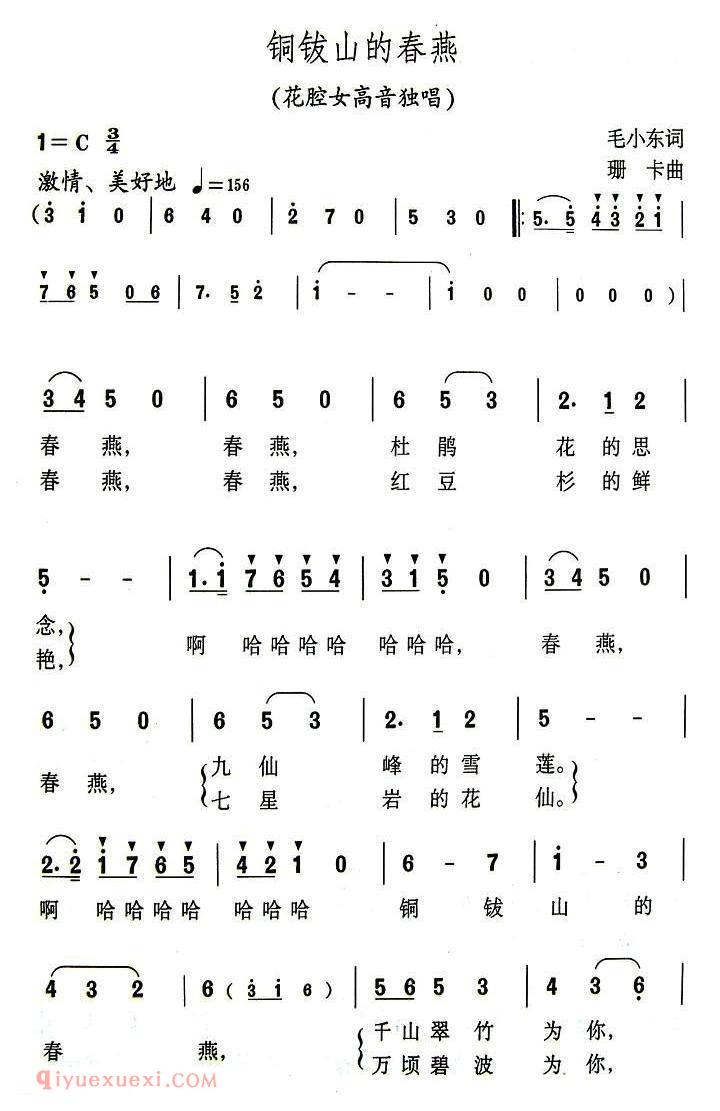 铜钹山的春燕
(花腔女高音独唱)
1=C 3/4 毛小东词
激情、美好地 ♩=156 珊 卡曲
(3 1 0 | 6 4 0 | 2 7 0 | 5 3 0 ‖: 5. 5 4 3 2 1 |
7 6 5 0 6 | 7. 5 2 | 1 - - | 1 0 0 | 0 0 0 ) |
3 4 5 0 | 6 5 0 | 6 5 3 | 2. 1 2 |
春 燕, 春 燕, 杜 鹃 花 的 思
春 燕, 春 燕, 红 豆 杉 的 鲜
5 - - | 1. 1 7 6 5 4 | 3 1 5 0 | 3 4 5 0 |
念, 啊 哈 哈 哈 哈 哈 哈 哈, 春 燕,
艳,
6 5 0 | 6 5 3 | 2. 1 2 | 5 - - |
春 燕, 九 仙 峰 的 雪 莲。
七 星 岩 的 花 仙。
2. 2 1 7 6 5 | 4 2 1 0 | 6 - 7 | 1 - 3 |
啊 哈 哈 哈 哈 哈 哈 哈 铜 钹 山 的
4 3 2 | 6 ( 3 1 6 ) | 5 6 5 3 | 4 3 6 |
春 燕, 千 山 翠 竹 为 你,
万 顷 碧 波 为 你,
qiyuexuexi.com